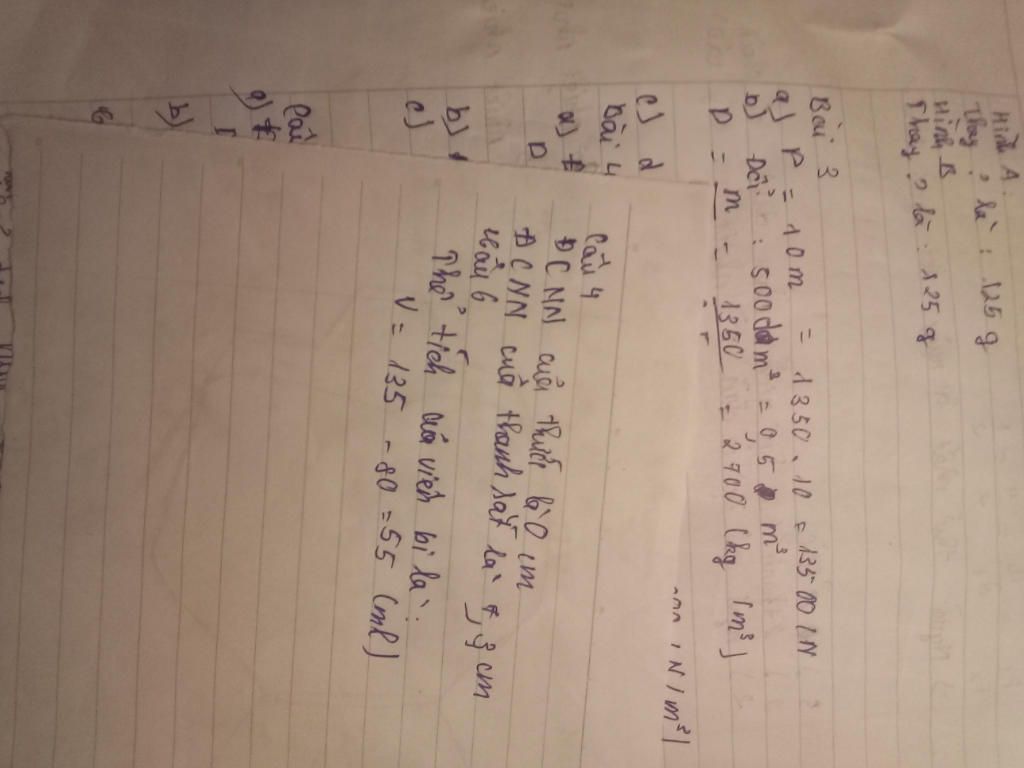 Hình A:
Thay ? là : 125 g
Hình B
Thay ? là : 125 g
Bài 3
a) P = 10 m = 1350 . 10 = 13500 (N
b) Đổi : 500 dm³ = 0,5 m³
D = m = 1350 = 2700 (kg / m³)
c) d
N / m³)
Bài 4
a)
D
b)
c)
Câu
a)
b)
Câu 4
ĐCNN của thước là 0 cm
ĐCNN của thanh sắt là 7,3 cm
Câu 6
Thể tích của viên bi là :
V = 135 - 80 = 55 (ml)